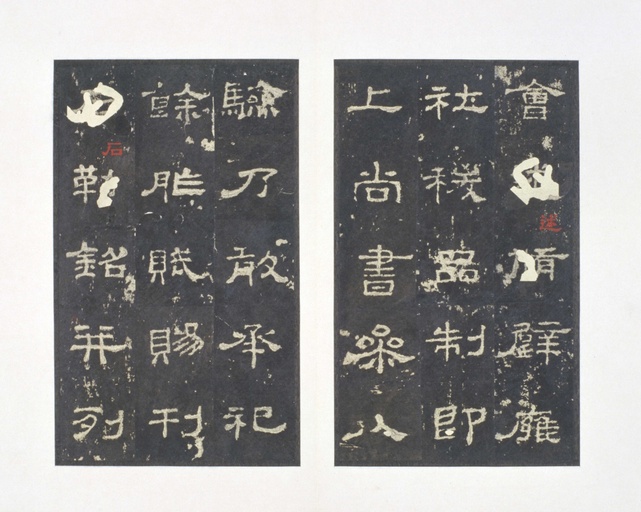 會
述
脩璧廱
社稷品制即
上尚書參以
驗乃敢承祀
餘胙賦賜刊
石
勒銘并列